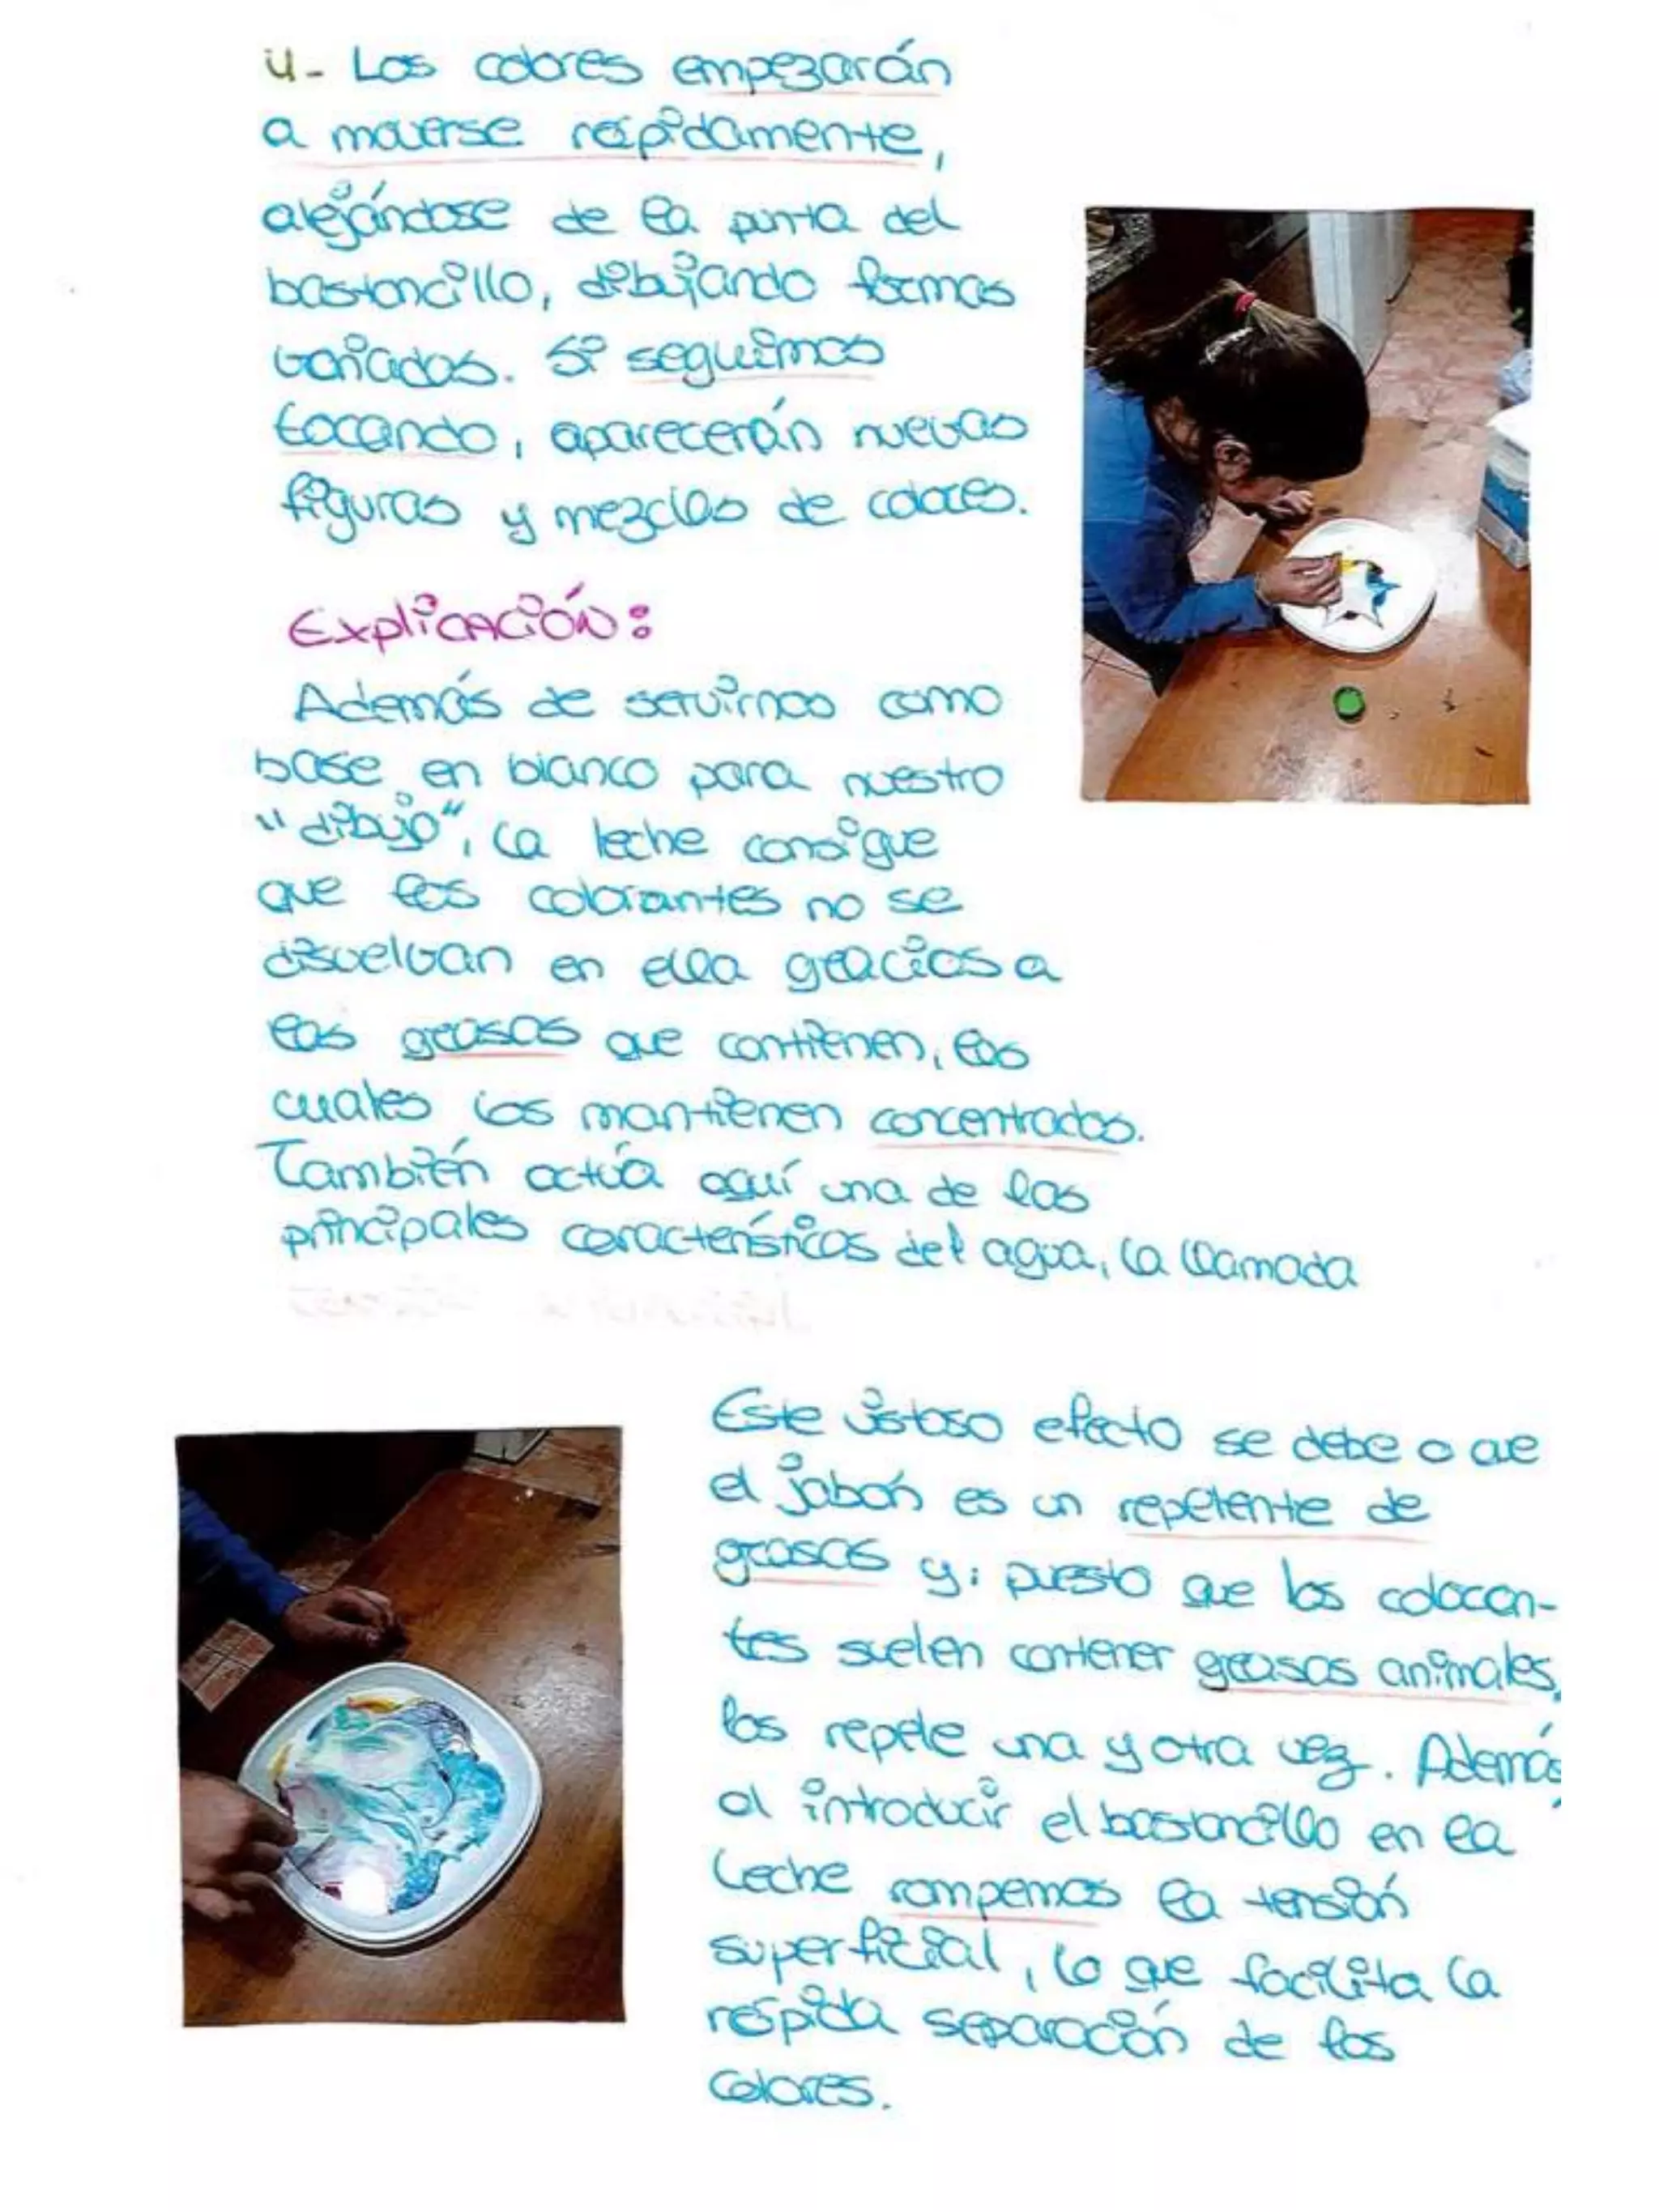 4- Los colores empezarán
a moverse rápidamente,
alejándose de la punta del
bastoncillo, dibujando formas
variadas. Si seguimos
tocando, aparecerán nuevas
figuras y mezclas de colores.
Explicación:
Además de servirnos como
base en blanco para nuestro
"dibujo", la leche consigue
que los colorantes no se
disuelvan en ella gracias a
las grasas que contienen, las
cuales los mantienen concentrados.
También actúa aquí una de las
principales características del agua, la llamada
Este vistoso efecto se debe a que
el jabón es un repelente de
grasas y, puesto que los colocan-
tes suelen contener grasas animales,
los repele una y otra vez. Además,
al introducir el bastoncillo en la
leche rompemos la tensión
superficial, lo que facilita la
rápida separación de los
colores.